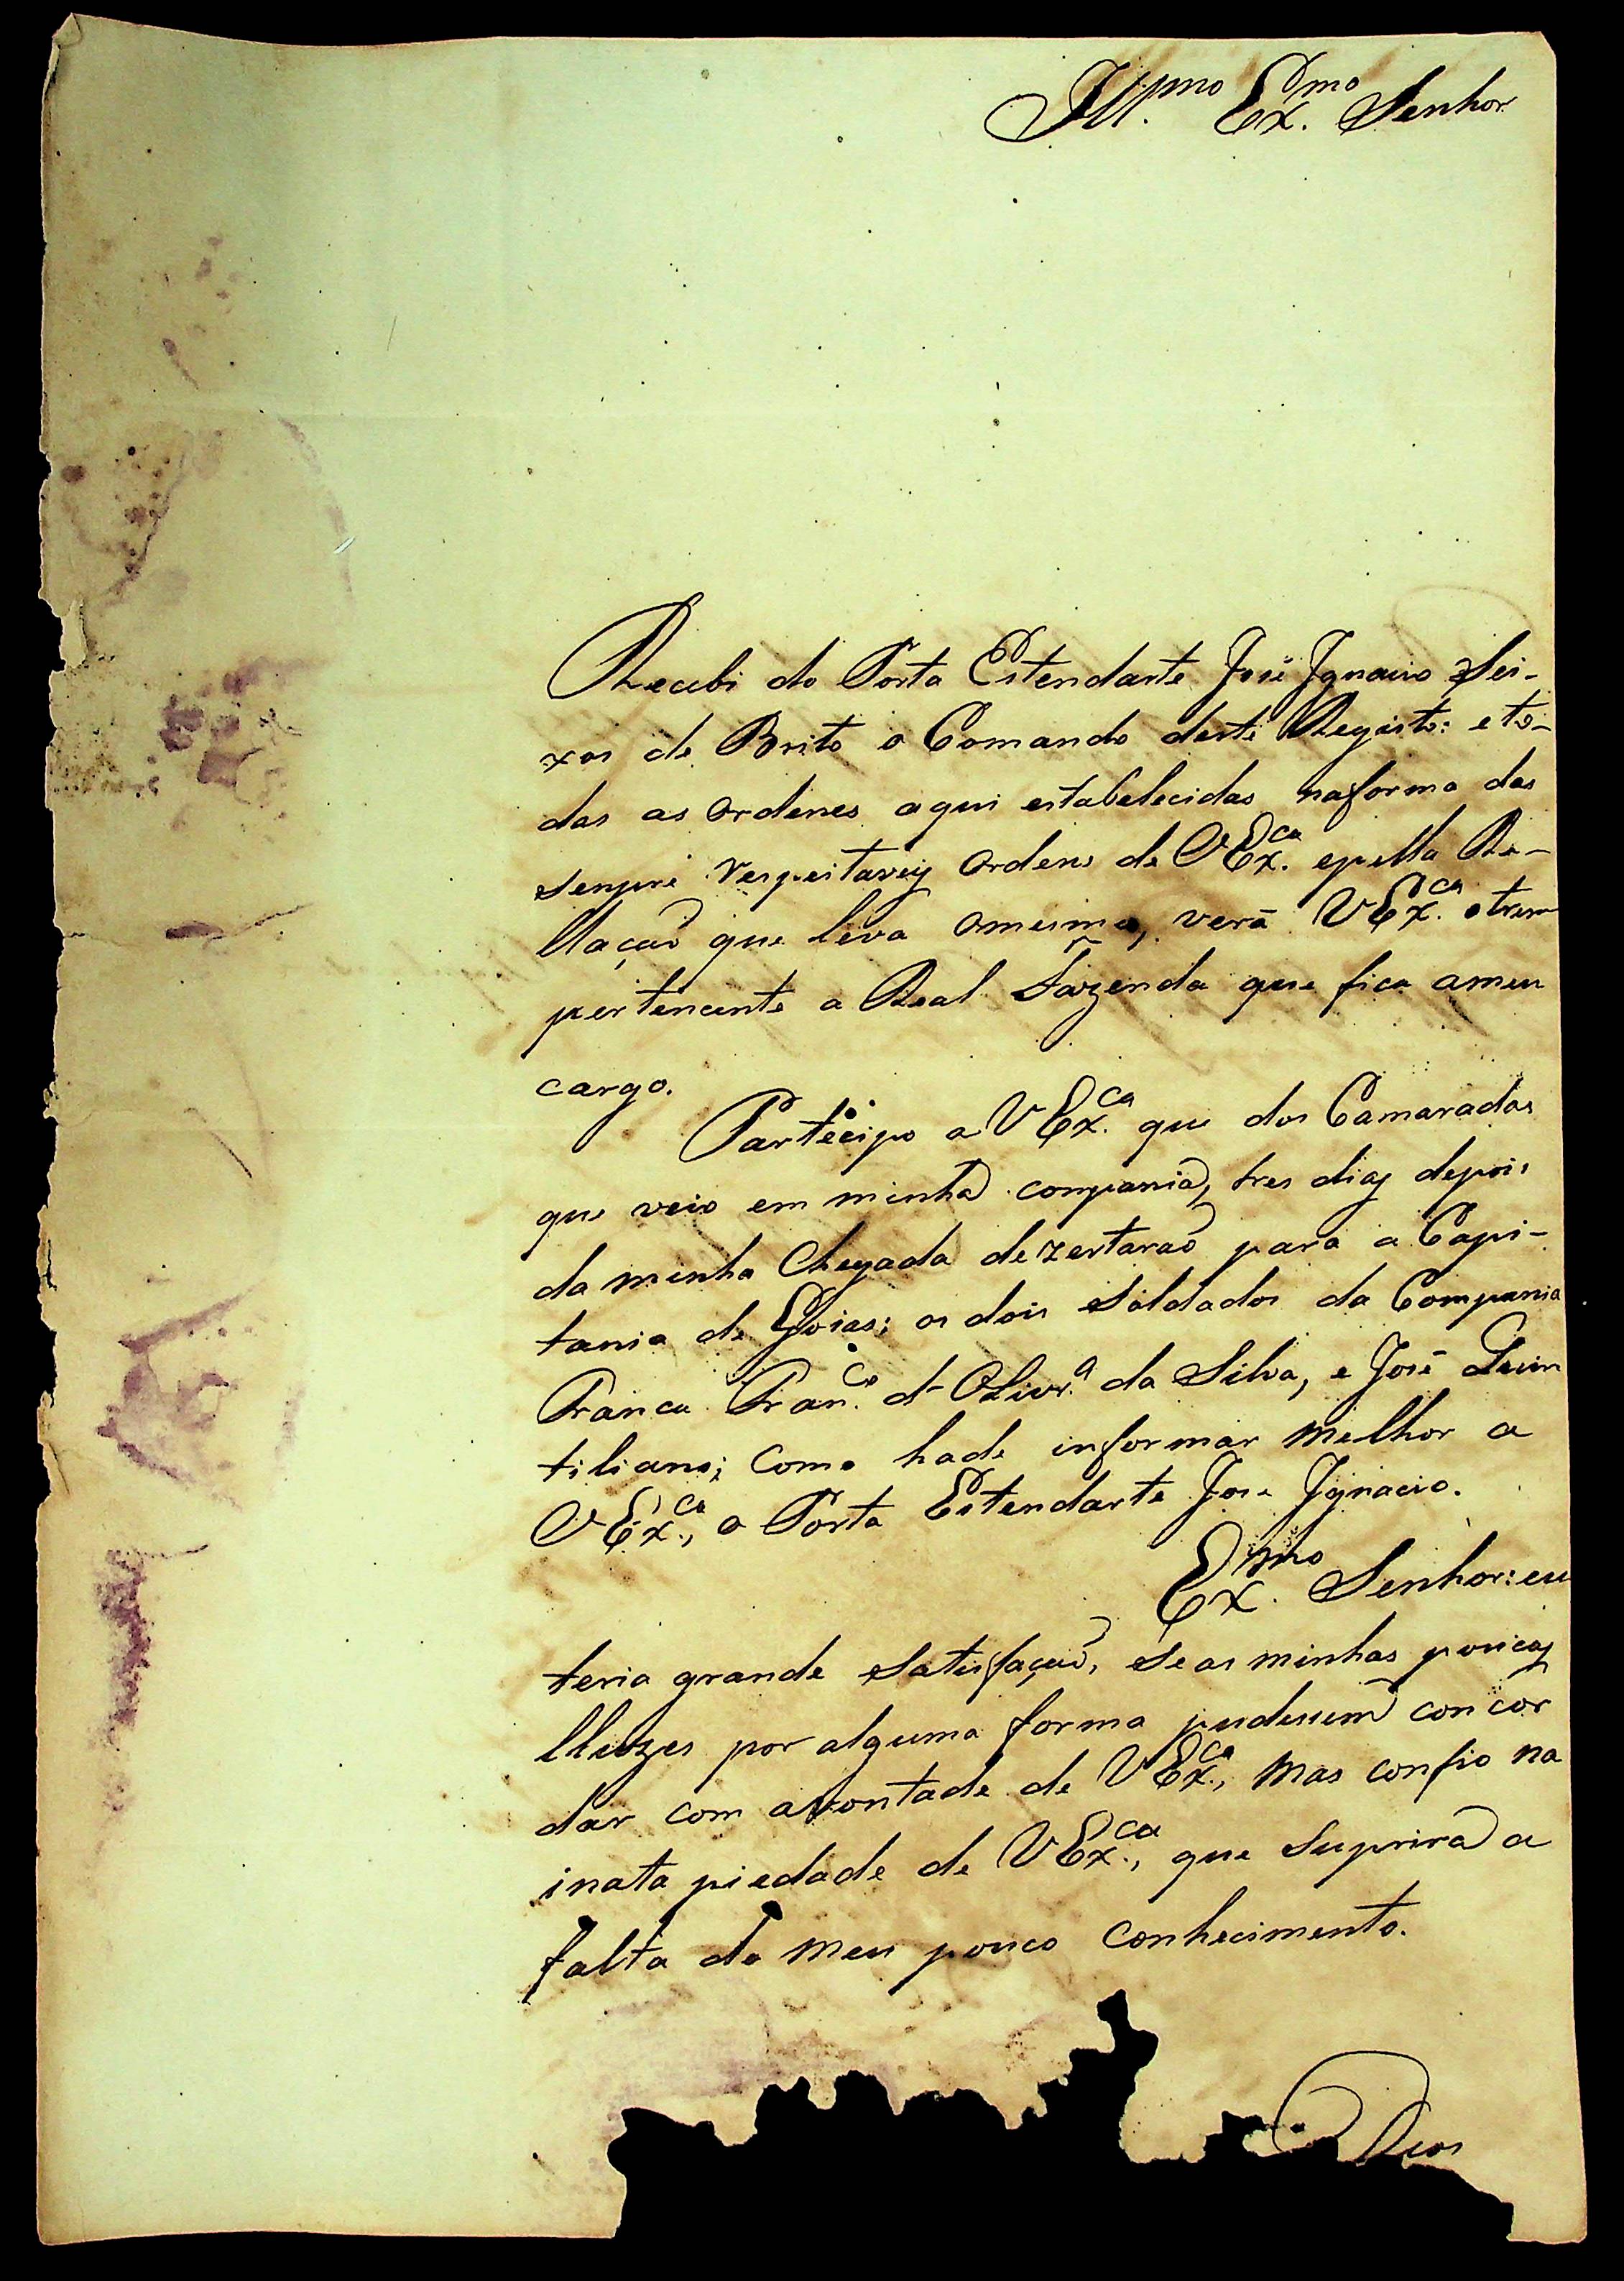 Ill.mo Ex.mo Senhor
Recebi do Porta Estendarte José Ignacio Sei-
xas de Brito o Comando deste Registo: e to-
das as ordenes aqui estabelecidas naforma das
sempre respeitaveis ordens de VEx.ca epella Re-
llaçaõ que leva omesmo, verá VEx.ca otrem
pertencente a Real Fazenda que fica ameu
cargo.
Partecipo a VEx.ca que dos Camaradas
que veio em minha compania, tres dias depois
da minha Chegada dezertaraõ para a Capi-
tania de Goias; os dois Soldados da Compania
Franca Fran.co d' Olivr.a da Silva, e José Quin
tiliano; Como hade informar melhor a
VEx.ca, o Porta Estendarte Jose Ignacio.
Ex.mo Senhor: eu
teria grande satisfaçaõ, se as minhas poucas
lluzes por alguma forma pudessem concor
dar com avontade de VEx.ca, mas confio na
inata piedade de VEx.ca, que suprirá a
falta do meu pouco conhecimento.
Deos